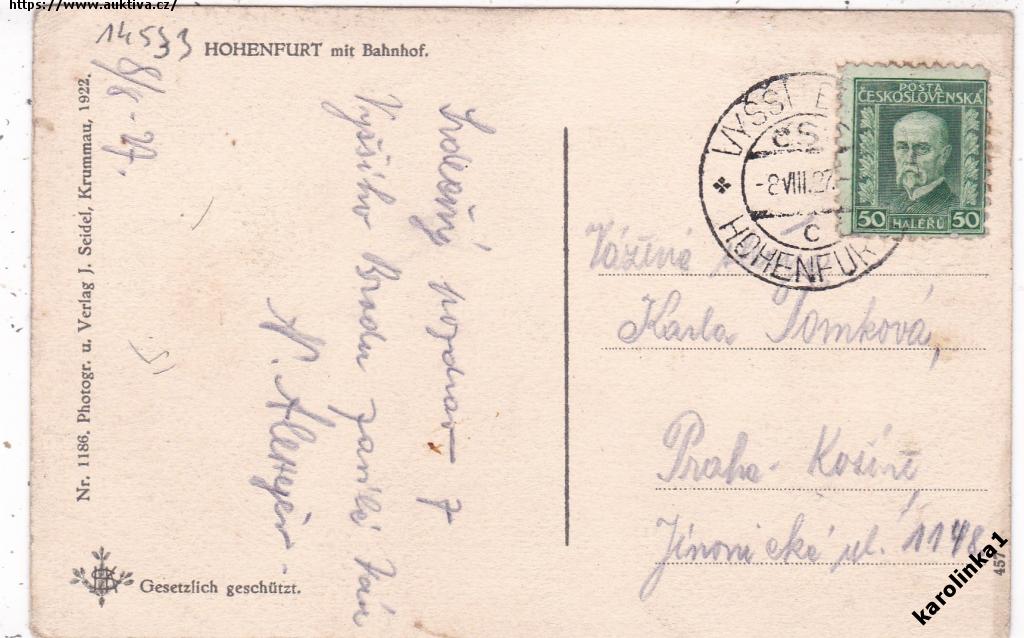 https://www.auktiva.cz/
14533
HOHENFURT mit Bahnhof.
8/8 - 27.
Nr. 1186. Photogr. u. Verlag J. Seidel, Krummau, 1922.
Srdečný pozdrav z
Vyššího Brodu zasílá Vám
Gesetzlich geschützt.
VYŠŠÍ B
ČS
-8.VIII.27
C
HOHENFUR
POŠTA
ČESKOSLOVENSKÁ
50 HALÉŘŮ 50
Vážená
Karla Tomková,
Praha - Košíře
Jinonická ul. 1148
457
karolinka1